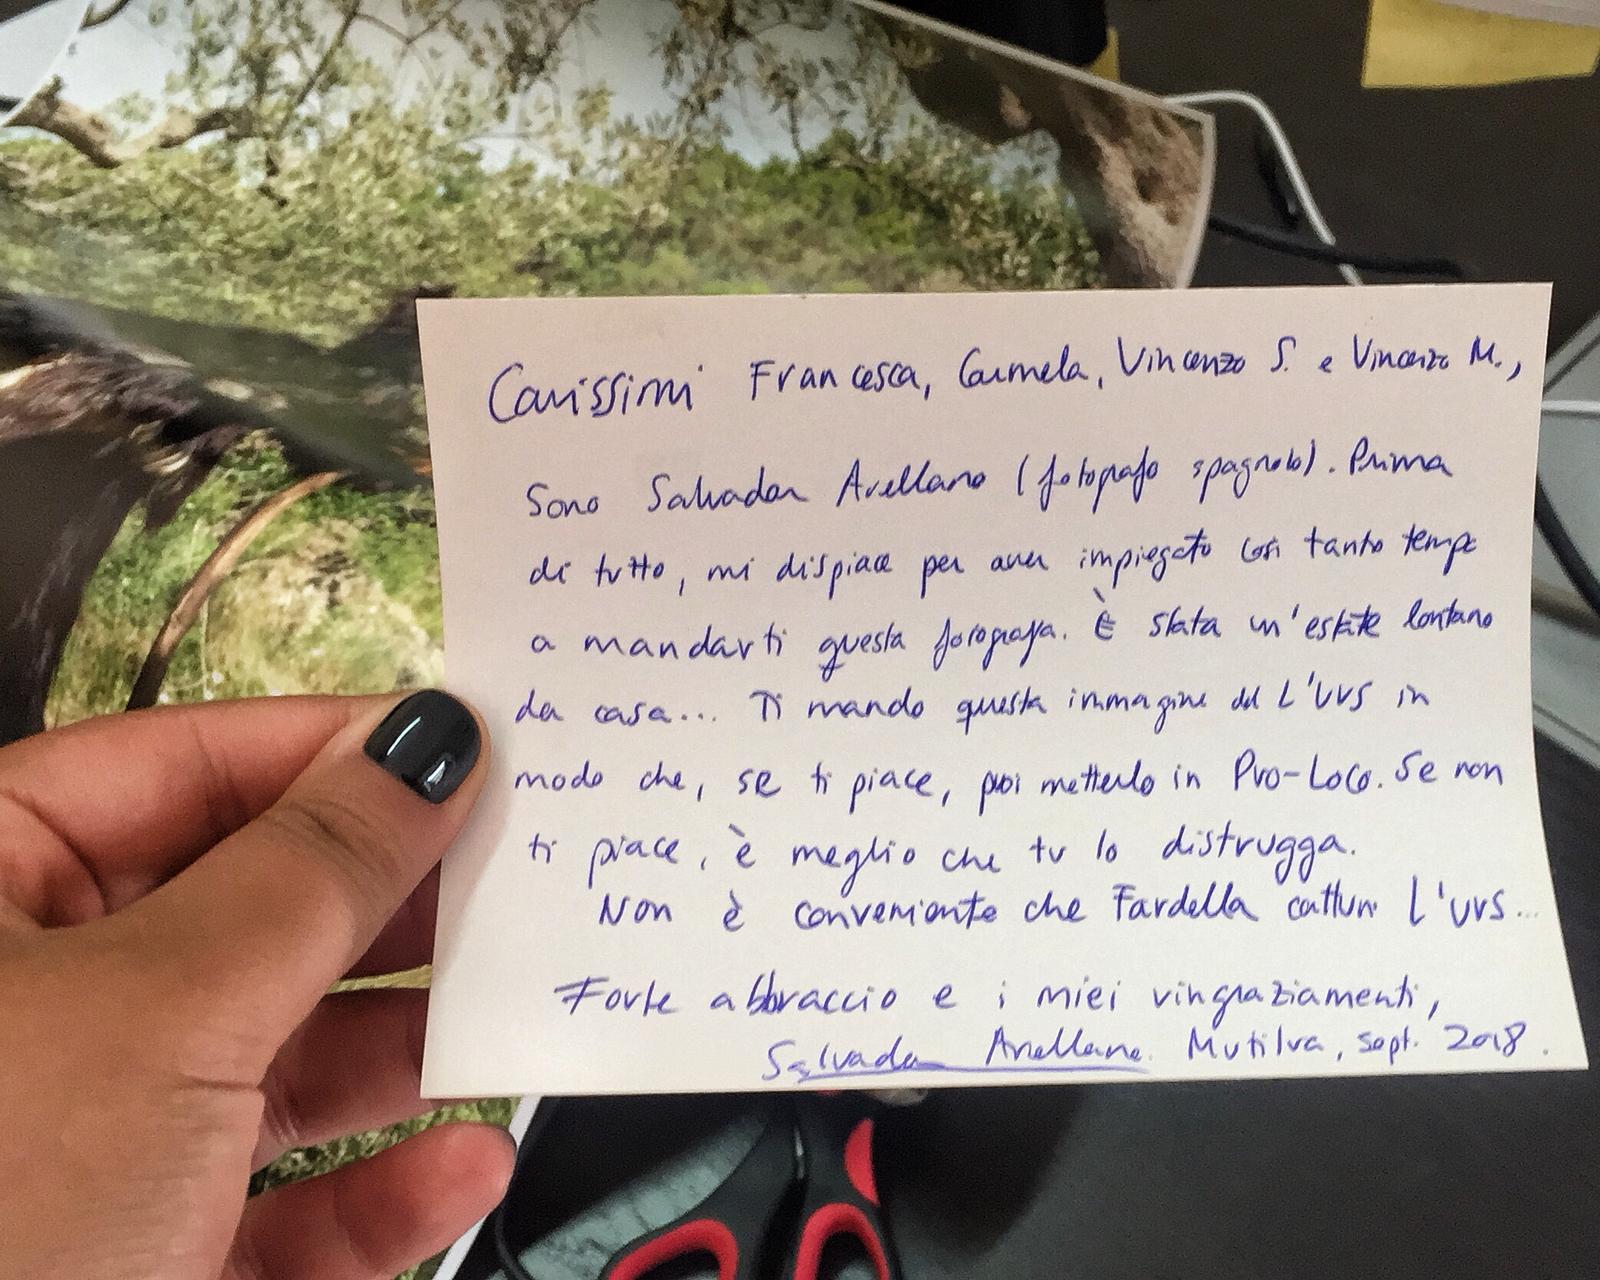 Carissimi Francesca, Carmela, Vincenzo S. e Vincenzo M.,
Sono Salvador Arellano (fotografo spagnolo). Prima
di tutto, mi dispiace per aver impiegato così tanto tempo
a mandarti questa fotografia. È stata un'estate lontano
da casa... Ti mando questa immagine del L'URS in
modo che, se ti piace, poi metterlo in Pro-Loco. Se non
ti piace, è meglio che tu lo distrugga.
Non è conveniente che Fardella catturi L'URS...
Forte abbraccio e i miei ringraziamenti,
Salvador Arellano. Mutilva, sept. 2018.